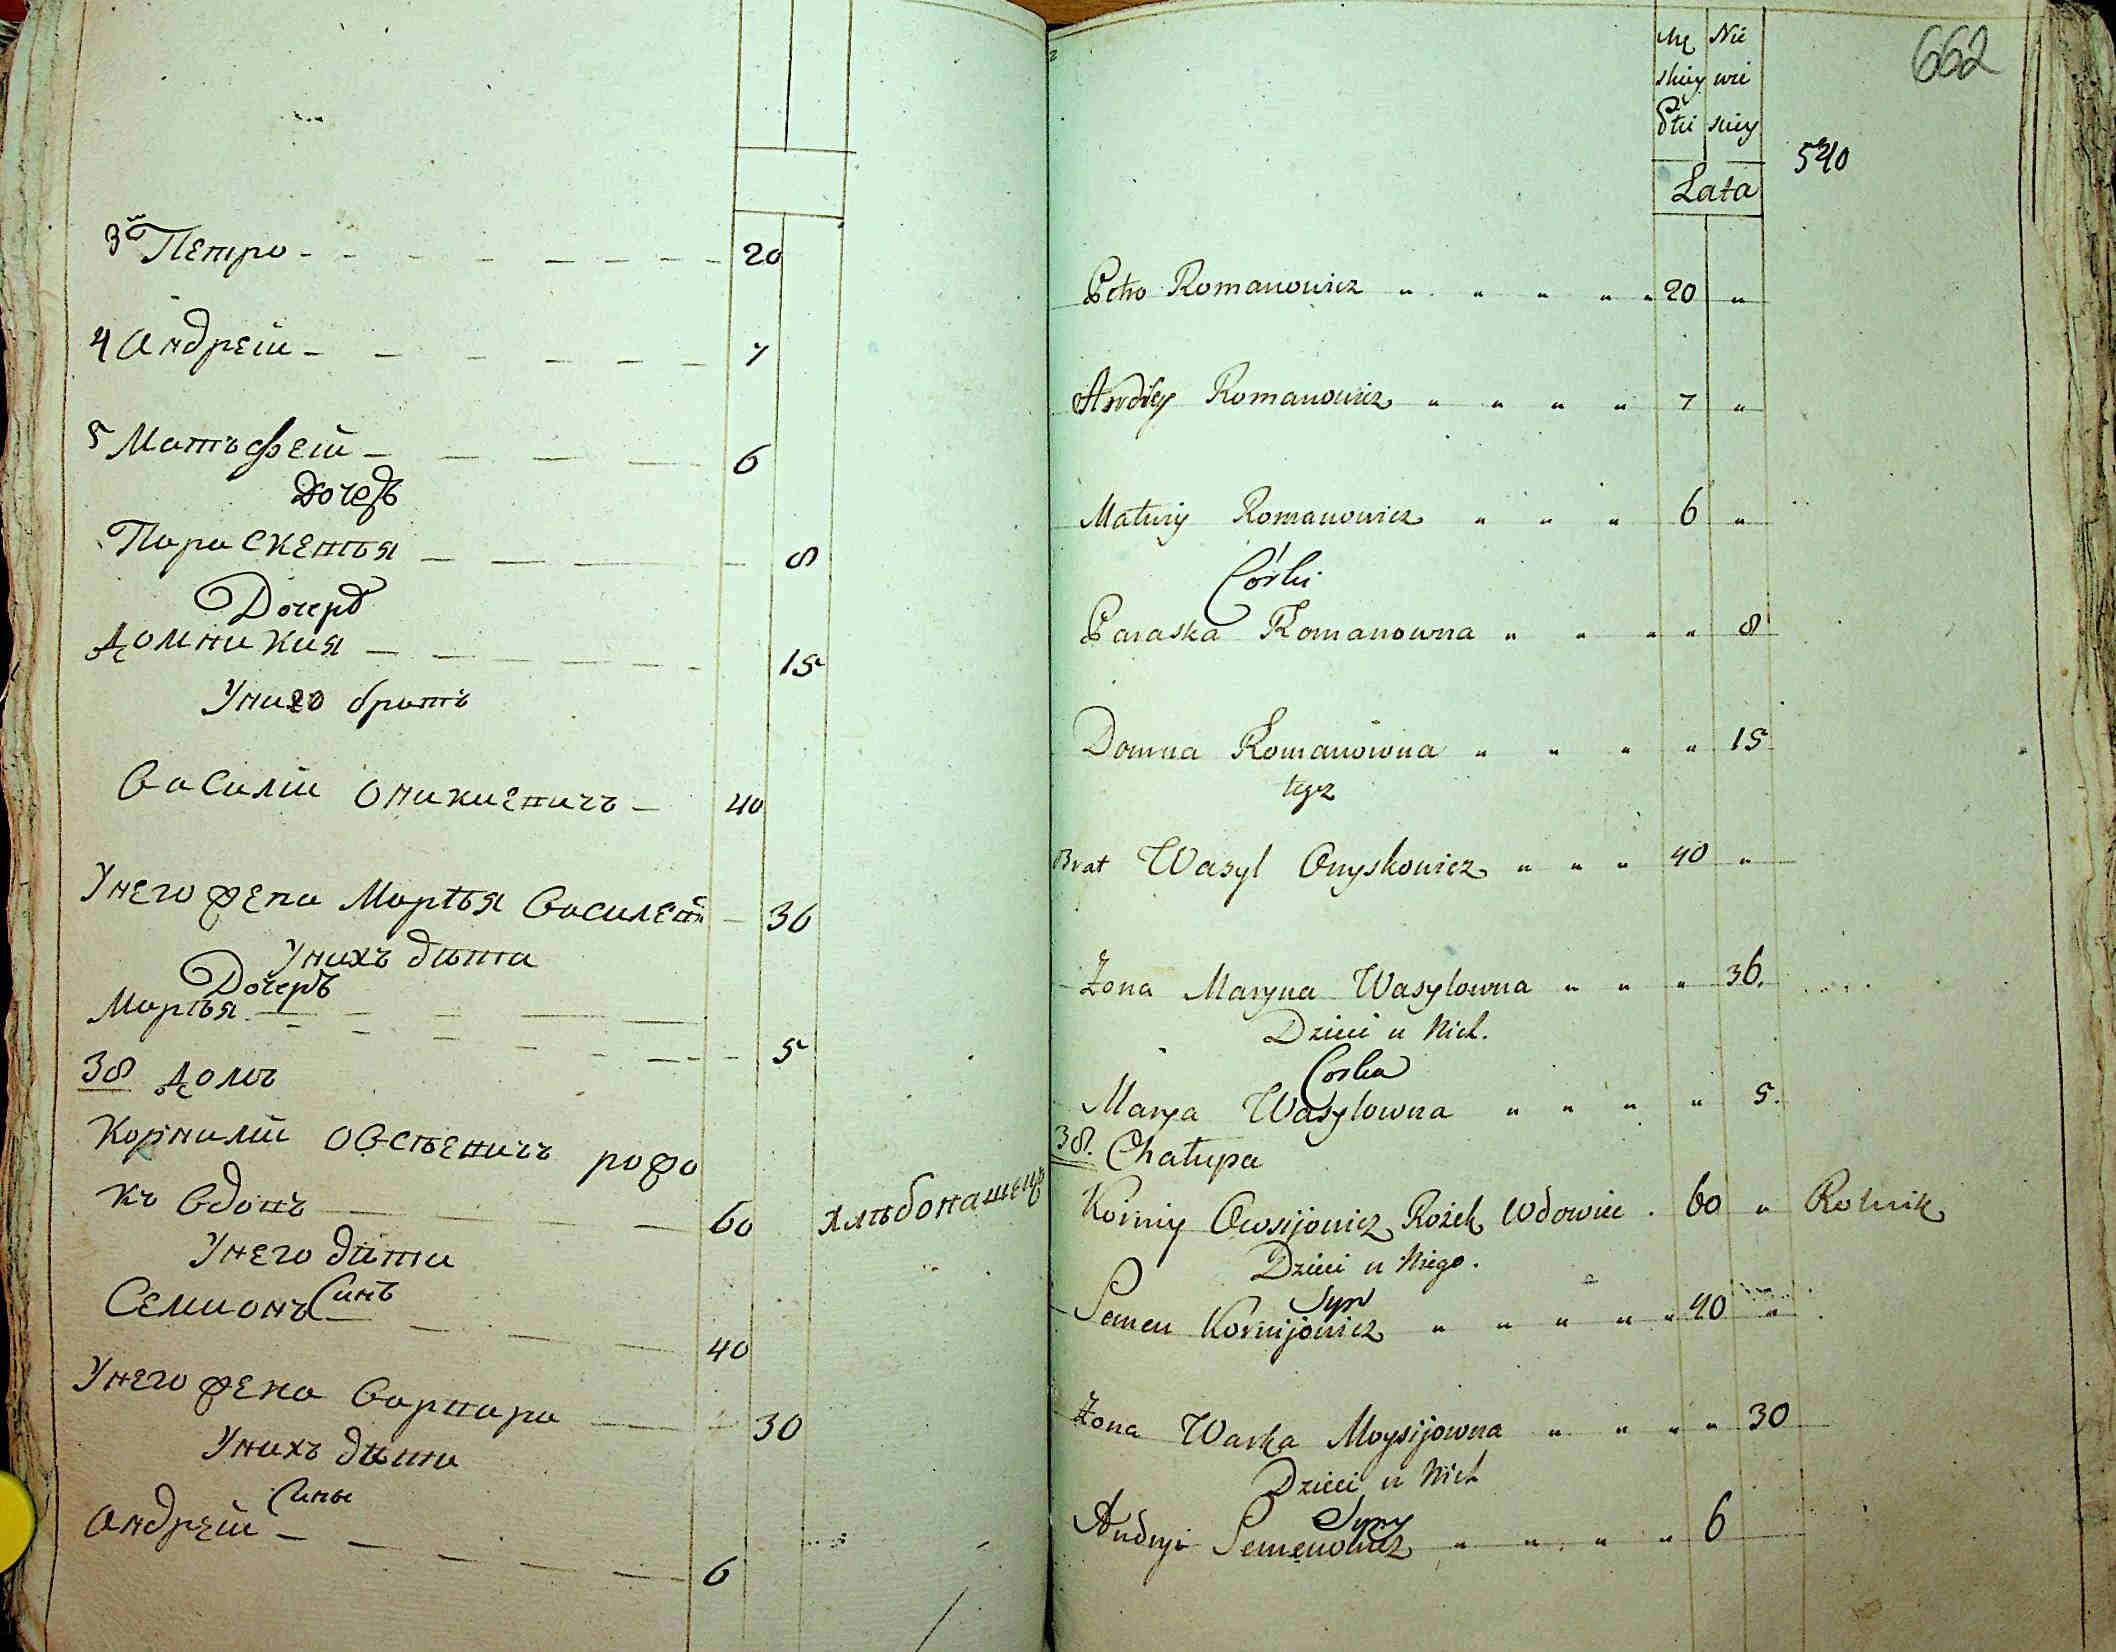 3й Петро 20
4 Андрей 7
5 Матъфей 6
Дочеръ
Параскевъя 8
Дочеръ
Домникия 15
Униго братъ
Василій Оникиевичъ 40
Унего жена Маръя Василев 36
Унихъ дѣти
Дочеръ
Маръя 5
38 Домъ
Корнилій Овсѣевичъ рожо
къ вдовъ 60 хлѣбопашецъ
Унего дѣти
Синъ
Семионъ 40
Унего жена Варвара 30
Унихъ дѣти
Сины
Андрей 6
662
Mę Nie
skiey wie
Płci skiey
540
Lata
Petro Romanowicz " " " " " 20 "
Andrey Romanowicz " " " " 7 "
Matwiy Romanowicz " " " 6 "
Córki
Paraska Romanowna " " " " 8
Domna Romanowna " " " " 15
tegoz
Brat Wasyl Onyskowicz " " " 40 "
Żona Maryna Wasylowna " " " 36.
Dzieci u Nich.
Corka
Marya Wasylowna " " " " 5.
38. Chałupa
Korniy Owsijowicz Rożek Wdowiec . 60 " Rolnik
Dzieci u Niego.
Syn
Semen Kornijowicz " " " " " 40 "
Żona Warka Moysijowna " " " " 30
Dzieci u Nich
Syny
Andryi Semenowicz " " " " 6